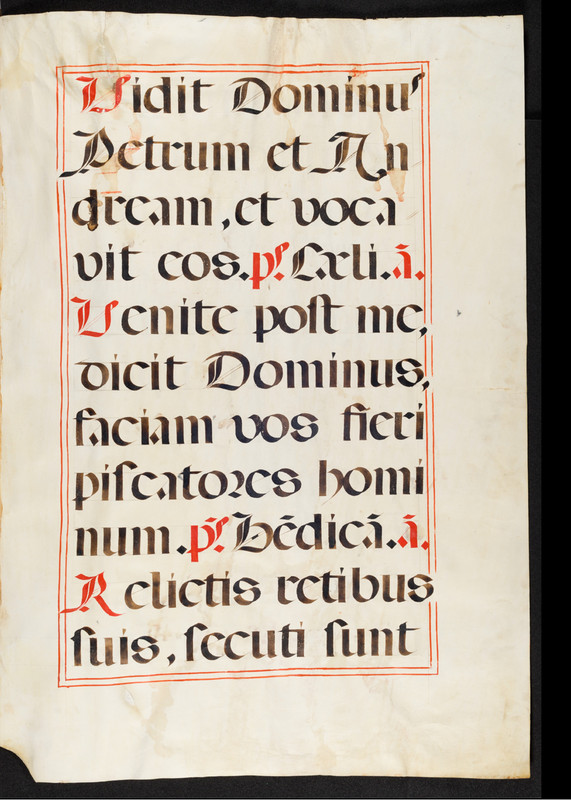 Vidit Dominus
Petrum et An
dream, et voca
vit eos. pſ. Cæli. ā.
Venite poſt me,
dicit Dominus,
faciam vos fieri
piſcatores homi
num. pſ. Bēdicā. ā.
Relictis retibus
ſuis, ſecuti ſunt